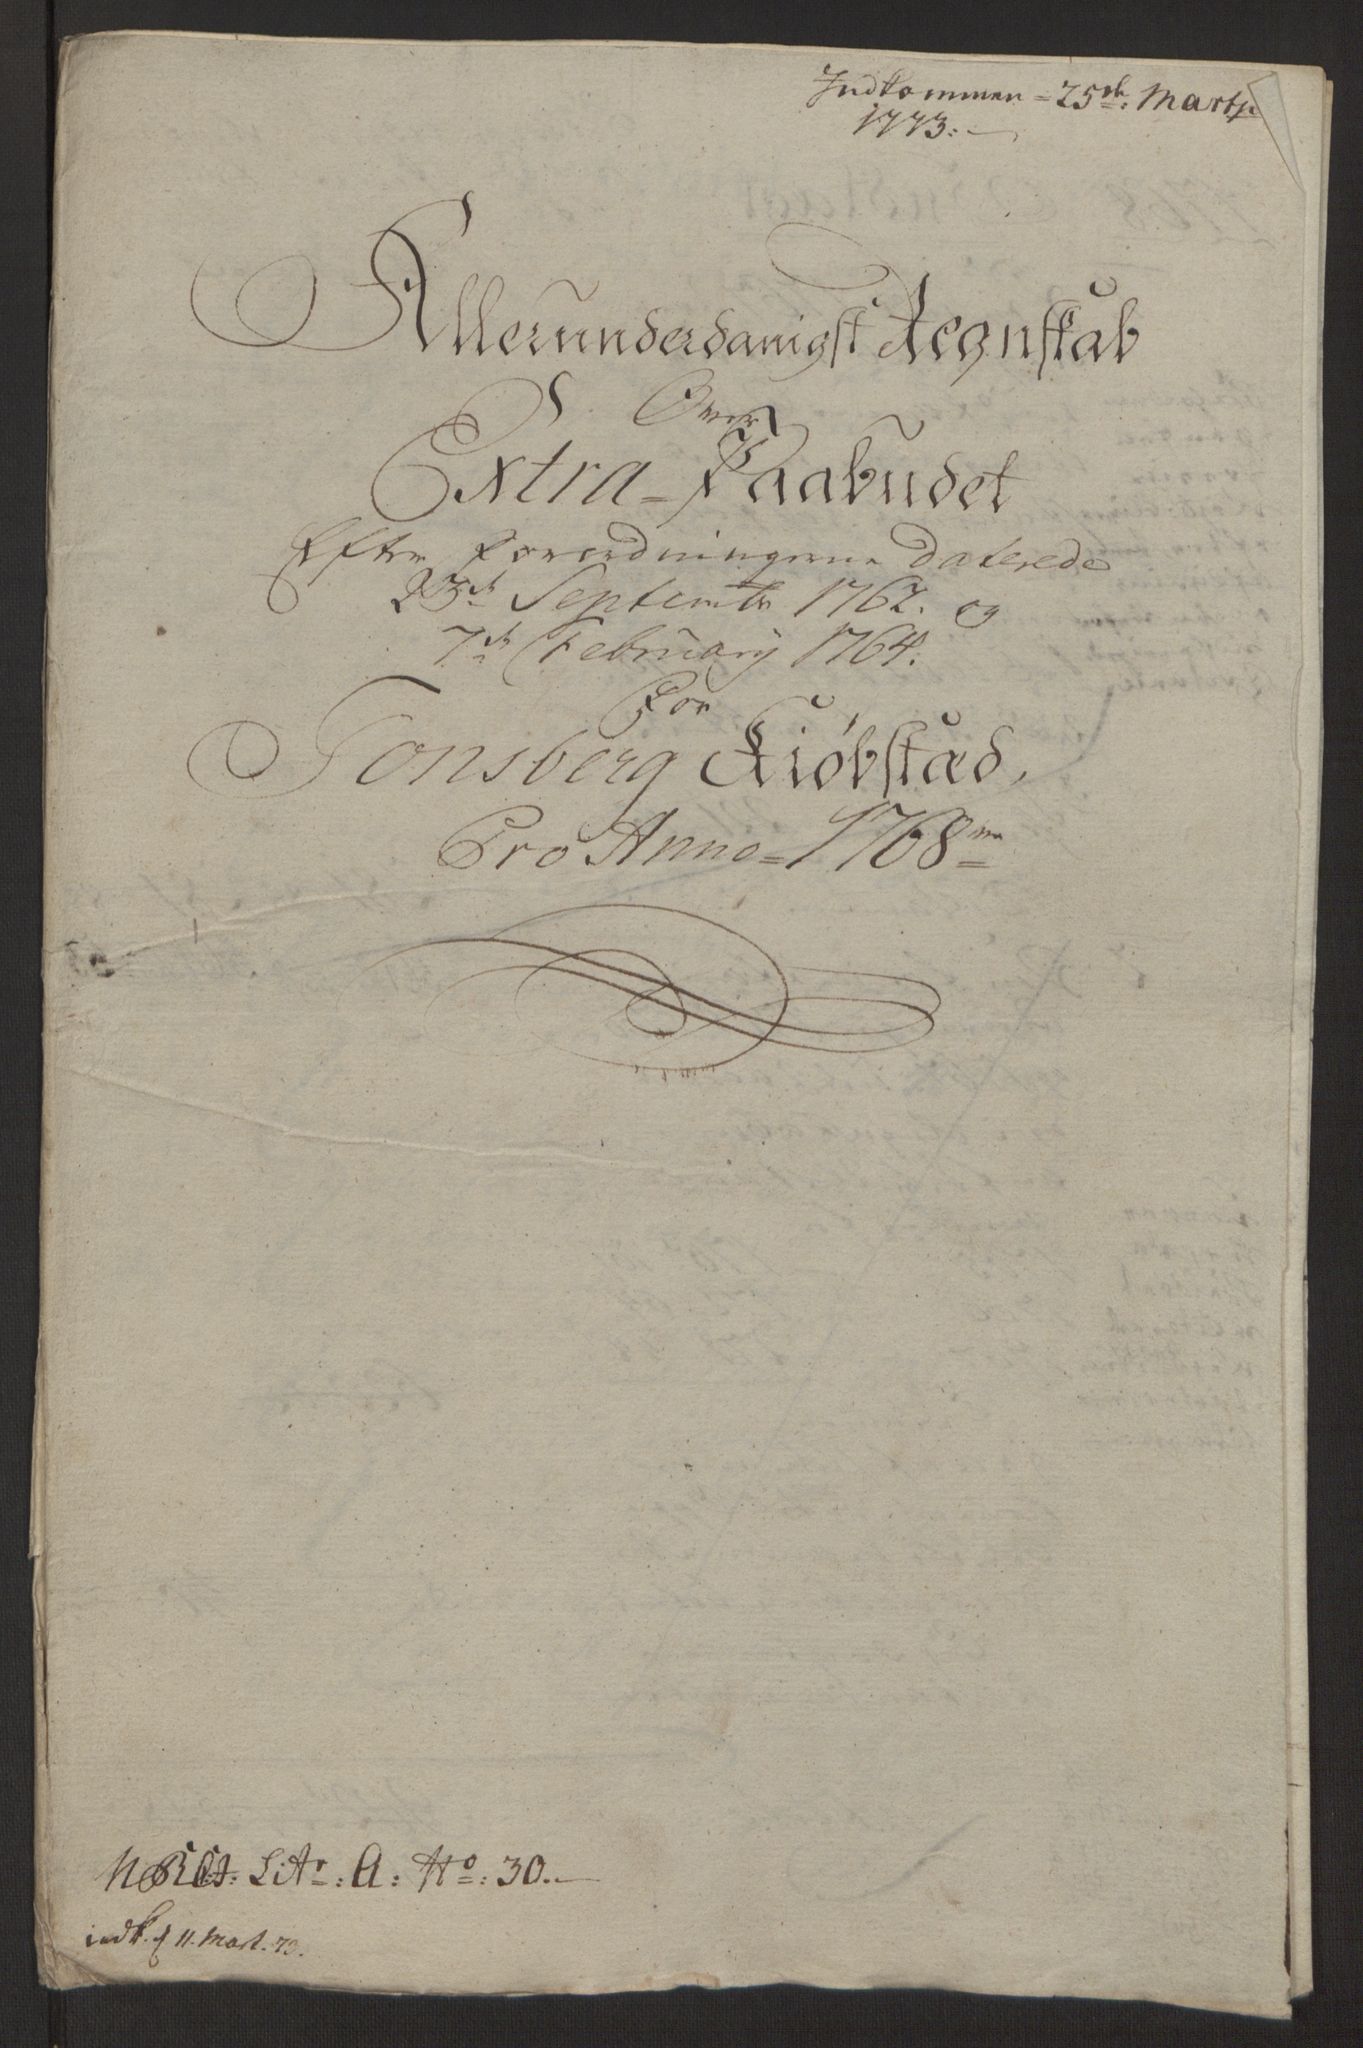 Indkommen = 25de: Martji
1773.
Allerunderdanigst Regnskab
Over
Extra-Paabudet
Efter Forordningerne daterede
23de Septembr 1762. og
7de February 1764.
For
Tonsberg Kiøbstad,
Pro Anno = 1768
Litr: A: No: 30.
indk. d 11. Mart. 73.